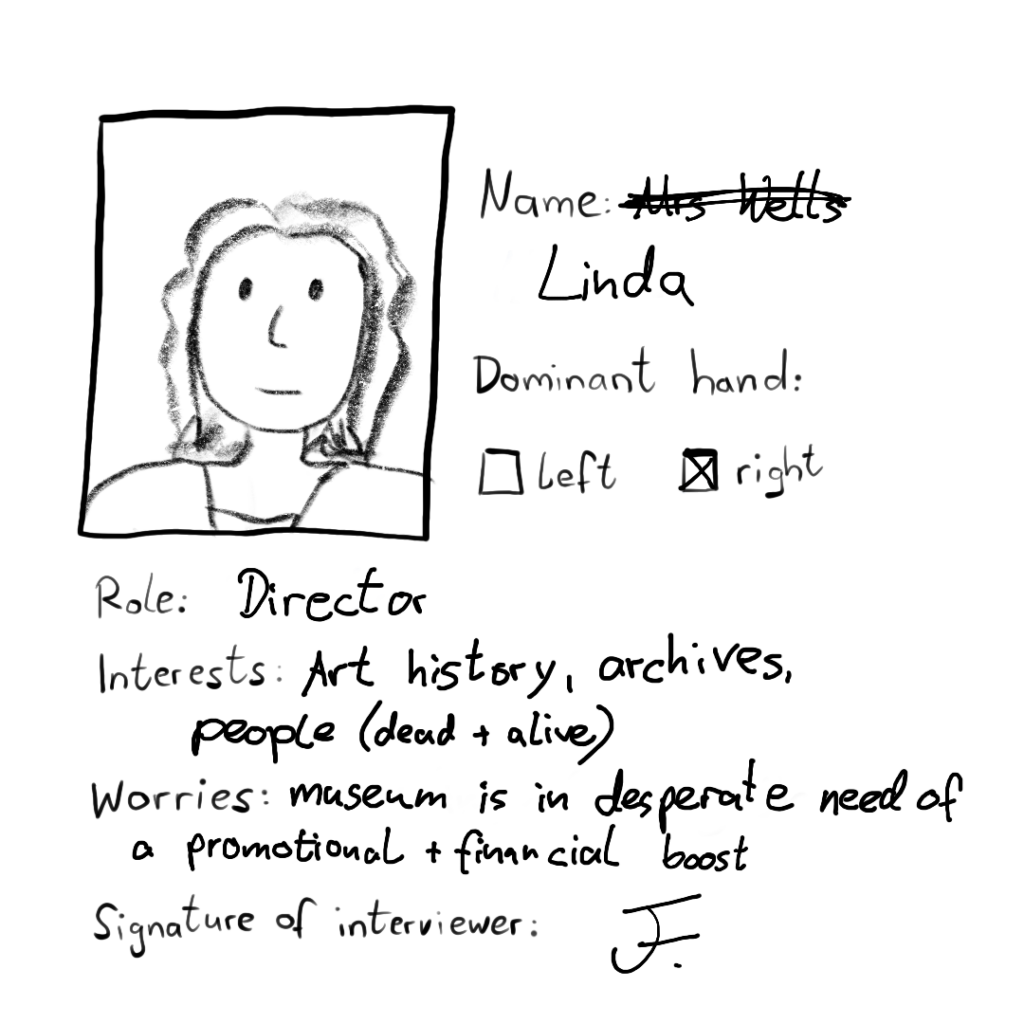 Name: Mrs Wells
Linda
Dominant hand:
left right
Role: Director
Interests: Art history, archives,
people (dead + alive)
Worries: museum is in desperate need of
a promotional + financial boost
Signature of interviewer: F.